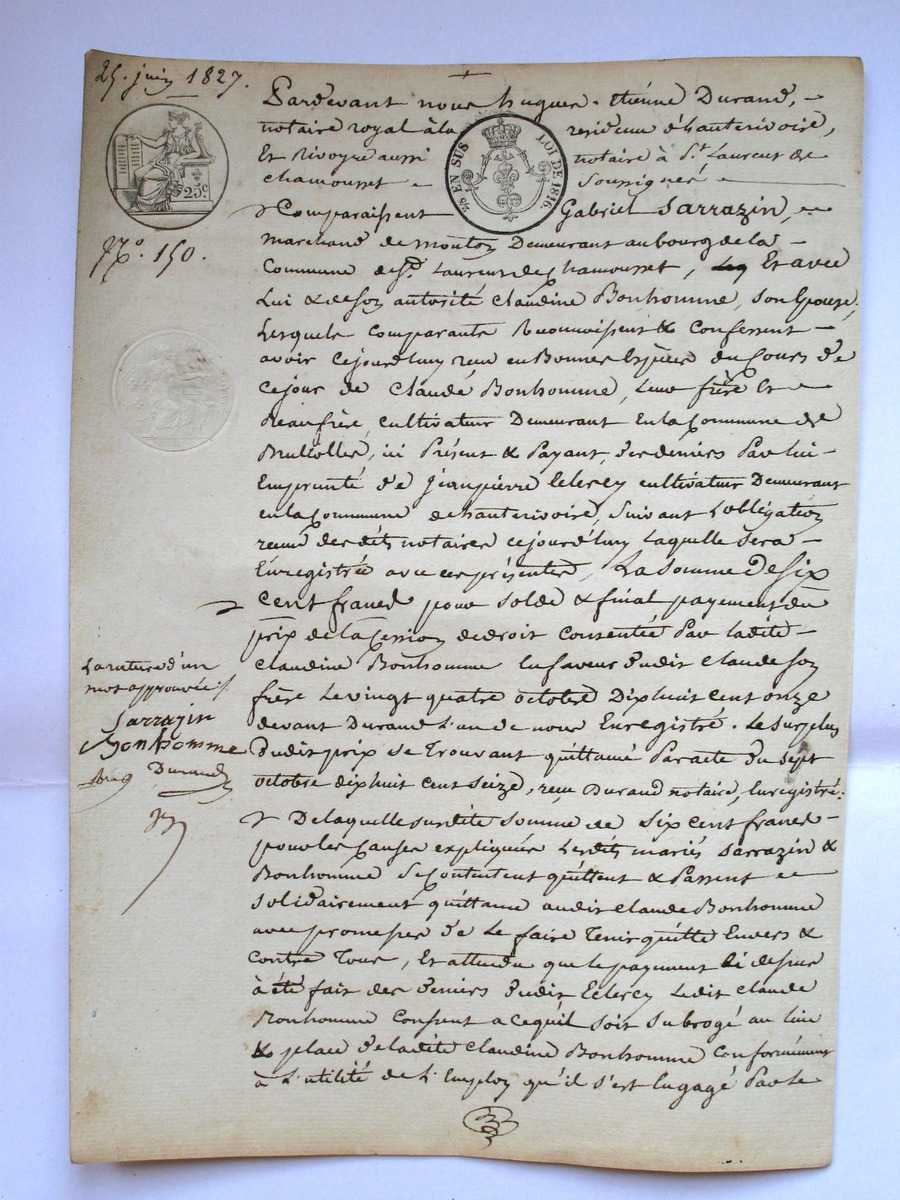 25. juin 1827.
Pardevant nous hugues-étienne Durand,
notaire royal à la residence d'hauterivoire,
Et Rivoyre aussi notaire à St. Laurent de
chamousset Soussignés
Comparaissent Gabriel Sarrazin,
marchand de mouton Demeurant au bourg de la
Commune de St. Laurent de Chamousset, Et avec
Lui & de son autorité Claudine Bonhomme, son Epouse,
Lesquels comparants Reconnoissent & Confessent
avoir cejourd'huy reçu en Bonnes Espèces du Cours de
ce jour de Claude Bonhomme, Leur frère Et
Beaufrère, cultivateur Demeurant En la Commune de
Brullolles, ici Présent & Payant, des deniers Par lui
Emprunté de jeanpierre Leclercy cultivateur Demeurant
en la Commune de hauterivoire, Suivant L'obligation
reçue desdits notaires cejourd'huy Laquelle Sera
Enregistrée avec ces présentes, La Somme De Six
Cent francs pour Solde & final payement du
prix de la Cession de droit Consentée Par ladite
Claudine Bonhomme En faveur dudit Claude Son
frère Le vingt quatre octobre Dix huit cent onze
devant Durand L'un de nous Enregistré. Le Surplus
Dudit prix se Trouvant quittancé Par acte du Sept
octobre dix huit Cent Seize, reçu Durand notaire, Enregistré.
De laquelle susdite Somme de Six Cent francs
pour les Causes expliquées Lesdits mariés Sarrazin &
Bonhomme Se Contentent quittent & Passent
Solidairement quittance audit Claude Bonhomme
avec promesses de Le faire Tenir quitte Envers &
Contre Tous, Et attendu que le payement ci dessus
à été fait des Deniers dudit Leclercy Ledit Claude
Bonhomme Consent a cequ'il soit Subrogé au lieu
& place de ladite Claudine Bonhomme Conformément
à L'utilité de L'Employ qu'il s'est Engagé Par le
25c.
2/8 EN SUS LOI DE 1816.
No. 150.
La rature d'un
mot approuvée
Sarrazin
Bonhomme
Durand